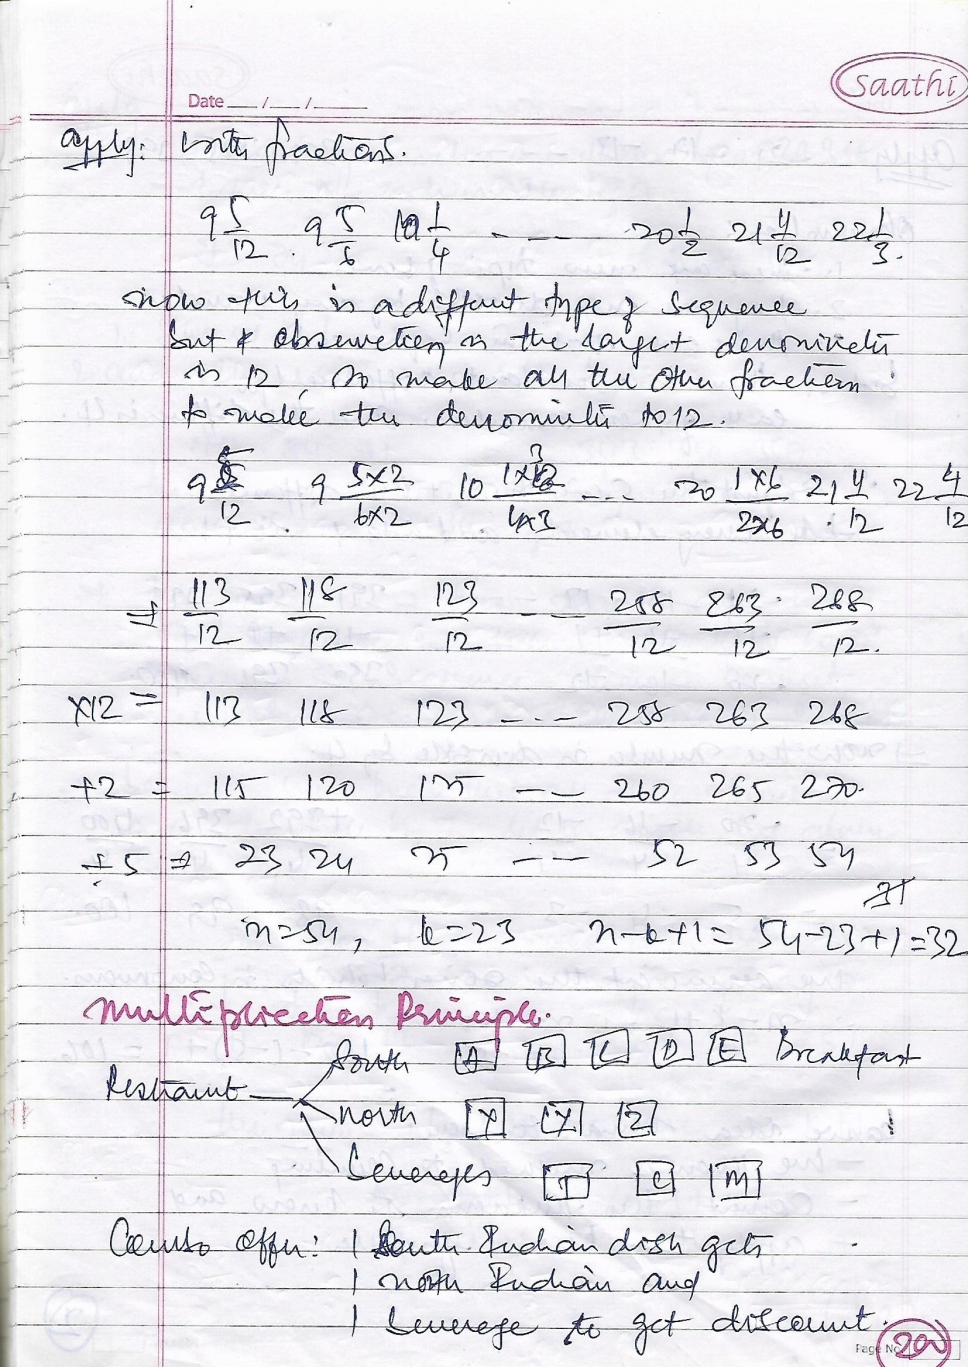 Saathi
Date __/__/____
apply: with fractions.
9 5/12 . 9 5/6 10 1/4 - - -- 20 1/2 21 4/12 22 1/3.
now this is a different type of sequence
but observation is the largest denominator
is 12, so make all the other fractions
to make the denominator to 12.
9 5/12 . 9 5×2/6×2 10 1×3/4×3 - - -- 20 1×6/2×6 21 4/12 22 4/12
⇒ 113/12 118/12 123/12 - - - 258/12 263/12 268/12.
×12 = 113 118 123 - - - 258 263 268
+2 = 115 120 125 - -- 260 265 270.
÷5 ⇒ 23 24 25 - - -- 52 53 54
n=54, k=23 n-k+1= 54-23+1=32
Multiplication Principle.
South A B C D E Breakfast
north X Y Z
beverages T C M
Combo offer: 1 South Indian dish gets
1 north Indian and
1 beverage to get discount.
Page No.